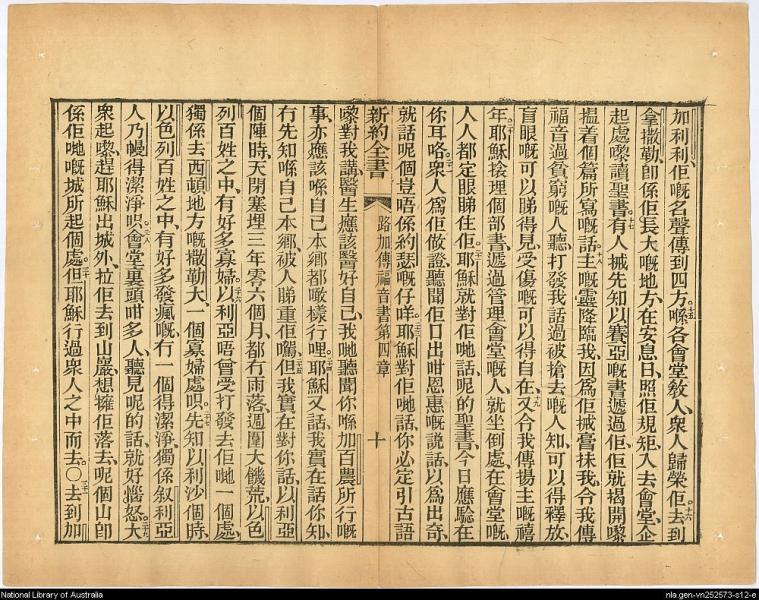 加利利、佢嘅名聲傳到四方。十五喺各會堂敎人、衆人歸榮佢。十六去到
拿撒勒、卽係佢長大嘅地方、在安息日、照佢規矩、入去會堂、企
起處嚟讀聖書。十七有人搣先知以賽亞嘅書遞過佢、佢就揭開嚟
搵着個篇所寫嘅話、十八主嘅靈降臨我、因爲佢搣膏抹我、令我傳
福音過貧窮嘅人聽、打發我話過被搶去嘅人知、可以得釋放、
盲眼嘅可以睇得見、受傷嘅可以得自在、十九又令我傳揚主嘅禧
年。二十耶穌捲埋個部書、遞過管理會堂嘅人、就坐倒處、在會堂嘅
人、人都定眼睇住佢。二一耶穌就對佢哋話、呢的聖書、今日應驗在
你耳咯。二二衆人爲佢做證、聽聞佢口出咁恩惠嘅說話、以爲出奇、
就話、呢個豈唔係約瑟嘅仔咩。二三耶穌對佢哋話、你必定引古語
新約全書
路加傳福音書第四章
十
嚟對我講、醫生應該醫好自己、我哋聽聞你喺加百農所行嘅
事、亦應該喺自己本鄉都噉樣行哩。二四耶穌又話、我實在話你知、
冇先知喺自己本鄉被人睇重佢嘅。二五但我實在對你話、以利亞
個陣時、天閉塞埋三年零六個月、都冇雨落、週圍大饑荒、以色
列百姓之中、有好多寡婦、二六以利亞唔會受打發去佢哋一個處、
獨係去西頓地方嘅撒勒大、一個寡婦處呮。二七先知以利沙個時、
以色列百姓之中、有好多發瘋嘅、冇一個得潔淨、獨係叙利亞
人乃幔得潔淨呮。二八會堂裏頭咁多人、聽見呢的話、就好惱怒。二九大
衆起嚟、趕耶穌出城外、拉佢去到山巖、想擁佢落去、呢個山卽
係佢哋嘅城所起個處。三十但耶穌行過衆人之中而去。○三一去到加
National Library of Australia
nla.gen-vn252573-s12-e